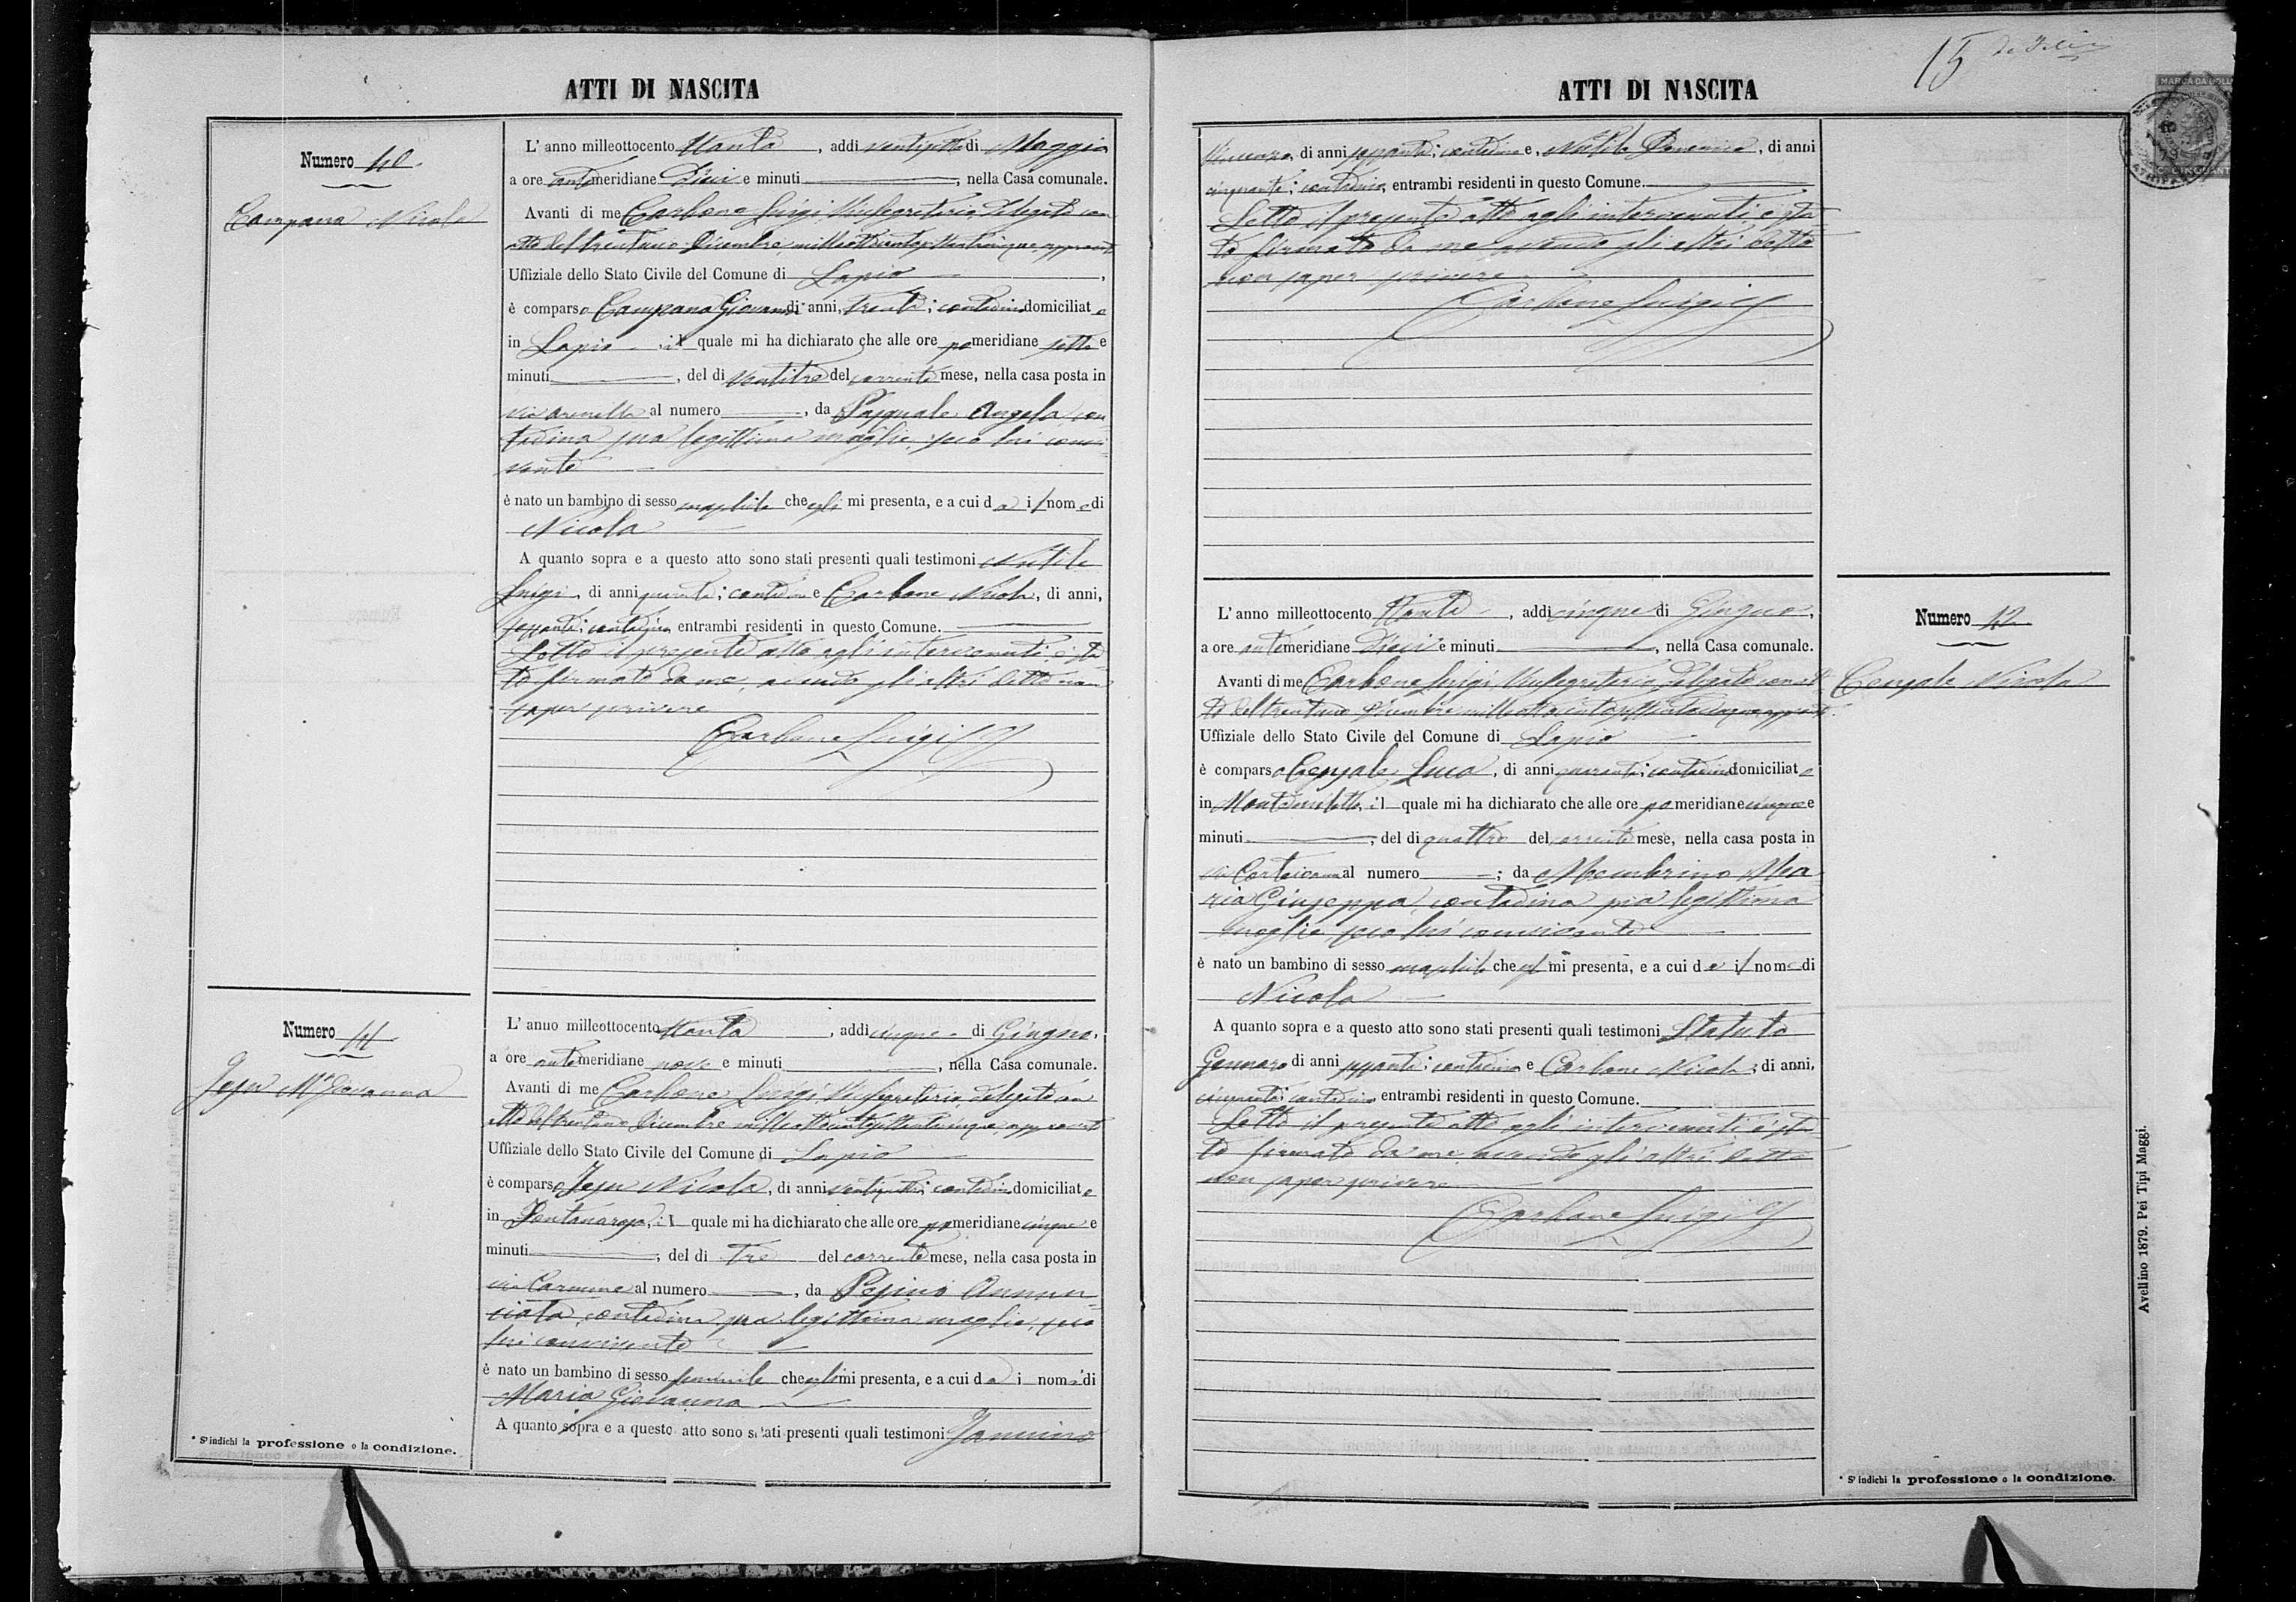 ATTI DI NASCITA
Numero 40
Campana Nicola
L' anno milleottocento ottanta, addi ventisette di Maggio
a ore antimeridiane dieci e minuti, nella Casa comunale.
Avanti di me Carbone Luigi Vicesegretario delegato con
atto del trentuno Dicembre milleottocentosettantacinque approvato
Uffiziale dello Stato Civile del Comune di Lapio,
è comparso Campana Giovanni di anni, trenta; contadino domiciliato
in Lapio, il quale mi ha dichiarato che alle ore pomeridiane sette e
minuti, del dì ventitre del corrente mese, nella casa posta in
via al numero, da Pasquale Angela, con
tadina sua legittima moglie, seco lui convi
vente
è nato un bambino di sesso maschile che egli mi presenta, e a cui da il nome di
Nicola
A quanto sopra e a questo atto sono stati presenti quali testimoni Nutile
Luigi, di anni quaranta; contadino e Carbone Nicola, di anni,
sessanta; contadino, entrambi residenti in questo Comune.
Letto il presente atto agli intervenuti, è sta
to firmato da me, avendo gli altri detto non
saper scrivere
Carbone Luigi
Numero 41
Jesu Ma Giovanna
L' anno milleottocento ottanta, addì cinque di Giugno,
a ore antimeridiane nove e minuti, nella Casa comunale.
Avanti di me Carbone Luigi, Vicesegretario delegato con
atto del trentuno Dicembre milleottocentosettantacinque approvato
Uffiziale dello Stato Civile del Comune di Lapio
è comparso Jesu Nicola, di anni contadino domiciliato
in Fontanarosa, il quale mi ha dichiarato che alle ore pomeridiane cinque e
minuti; del di tre del corrente mese, nella casa posta in
via Carmine al numero, da Pepino Annun
ziata, contadina sua legittima moglie, seco
lui convivente
è nato un bambino di sesso femminile che egli mi presenta, e a cui da i nome di
Maria Giovanna
A quanto sopra e a questo atto sono stati presenti quali testimoni Jannino
* S' indichi la professione o la condizione.
15
ATTI DI NASCITA
MARCA DA BOLLO
Vincenzo, di anni sessanta; contadino e, Nutile Domenico, di anni
cinquanta; contadino, entrambi residenti in questo Comune.
Letto il presente atto agli intervenuti è sta
to firmato da me avendo gli altri detto
non saper scrivere
Carbone Luigi
Numero 42
Cenzale Nicola
L' anno milleottocento ottanta, addi cinque di Giugno,
a ore antimeridiane dieci e minuti, nella Casa comunale.
Avanti di me Carbone Luigi, Vicesegretario, delegato con at
to del trentuno Dicembre milleottocentosettantacinque approvato
Uffiziale dello Stato Civile del Comune di Lapio
è comparso Luca, di anni quaranta; contadino domiciliato
in Montemiletto, il quale mi ha dichiarato che alle ore pomeridiane cinque e
minuti; del di quattro del corrente mese, nella casa posta in
via al numero; da Membrino Ma
ria Giuseppa, contadina sua legittima
moglie, seco lui convivente
è nato un bambino di sesso maschile che egli mi presenta, e a cui da il nome di
Nicola
A quanto sopra e a questo atto sono stati presenti quali testimoni Statuto
Gennaro di anni sessanta; contadino e Carbone Nicola; di anni,
cinquanta; contadino entrambi residenti in questo Comune.
Letto il presente atto agli intervenuti è sta
to firmato da me avendo gli altri detto
non saper scrivere
Carbone Luigi
* S' indichi la professione o la condizione.
Avellino 1879. Pei Tipi Maggi.